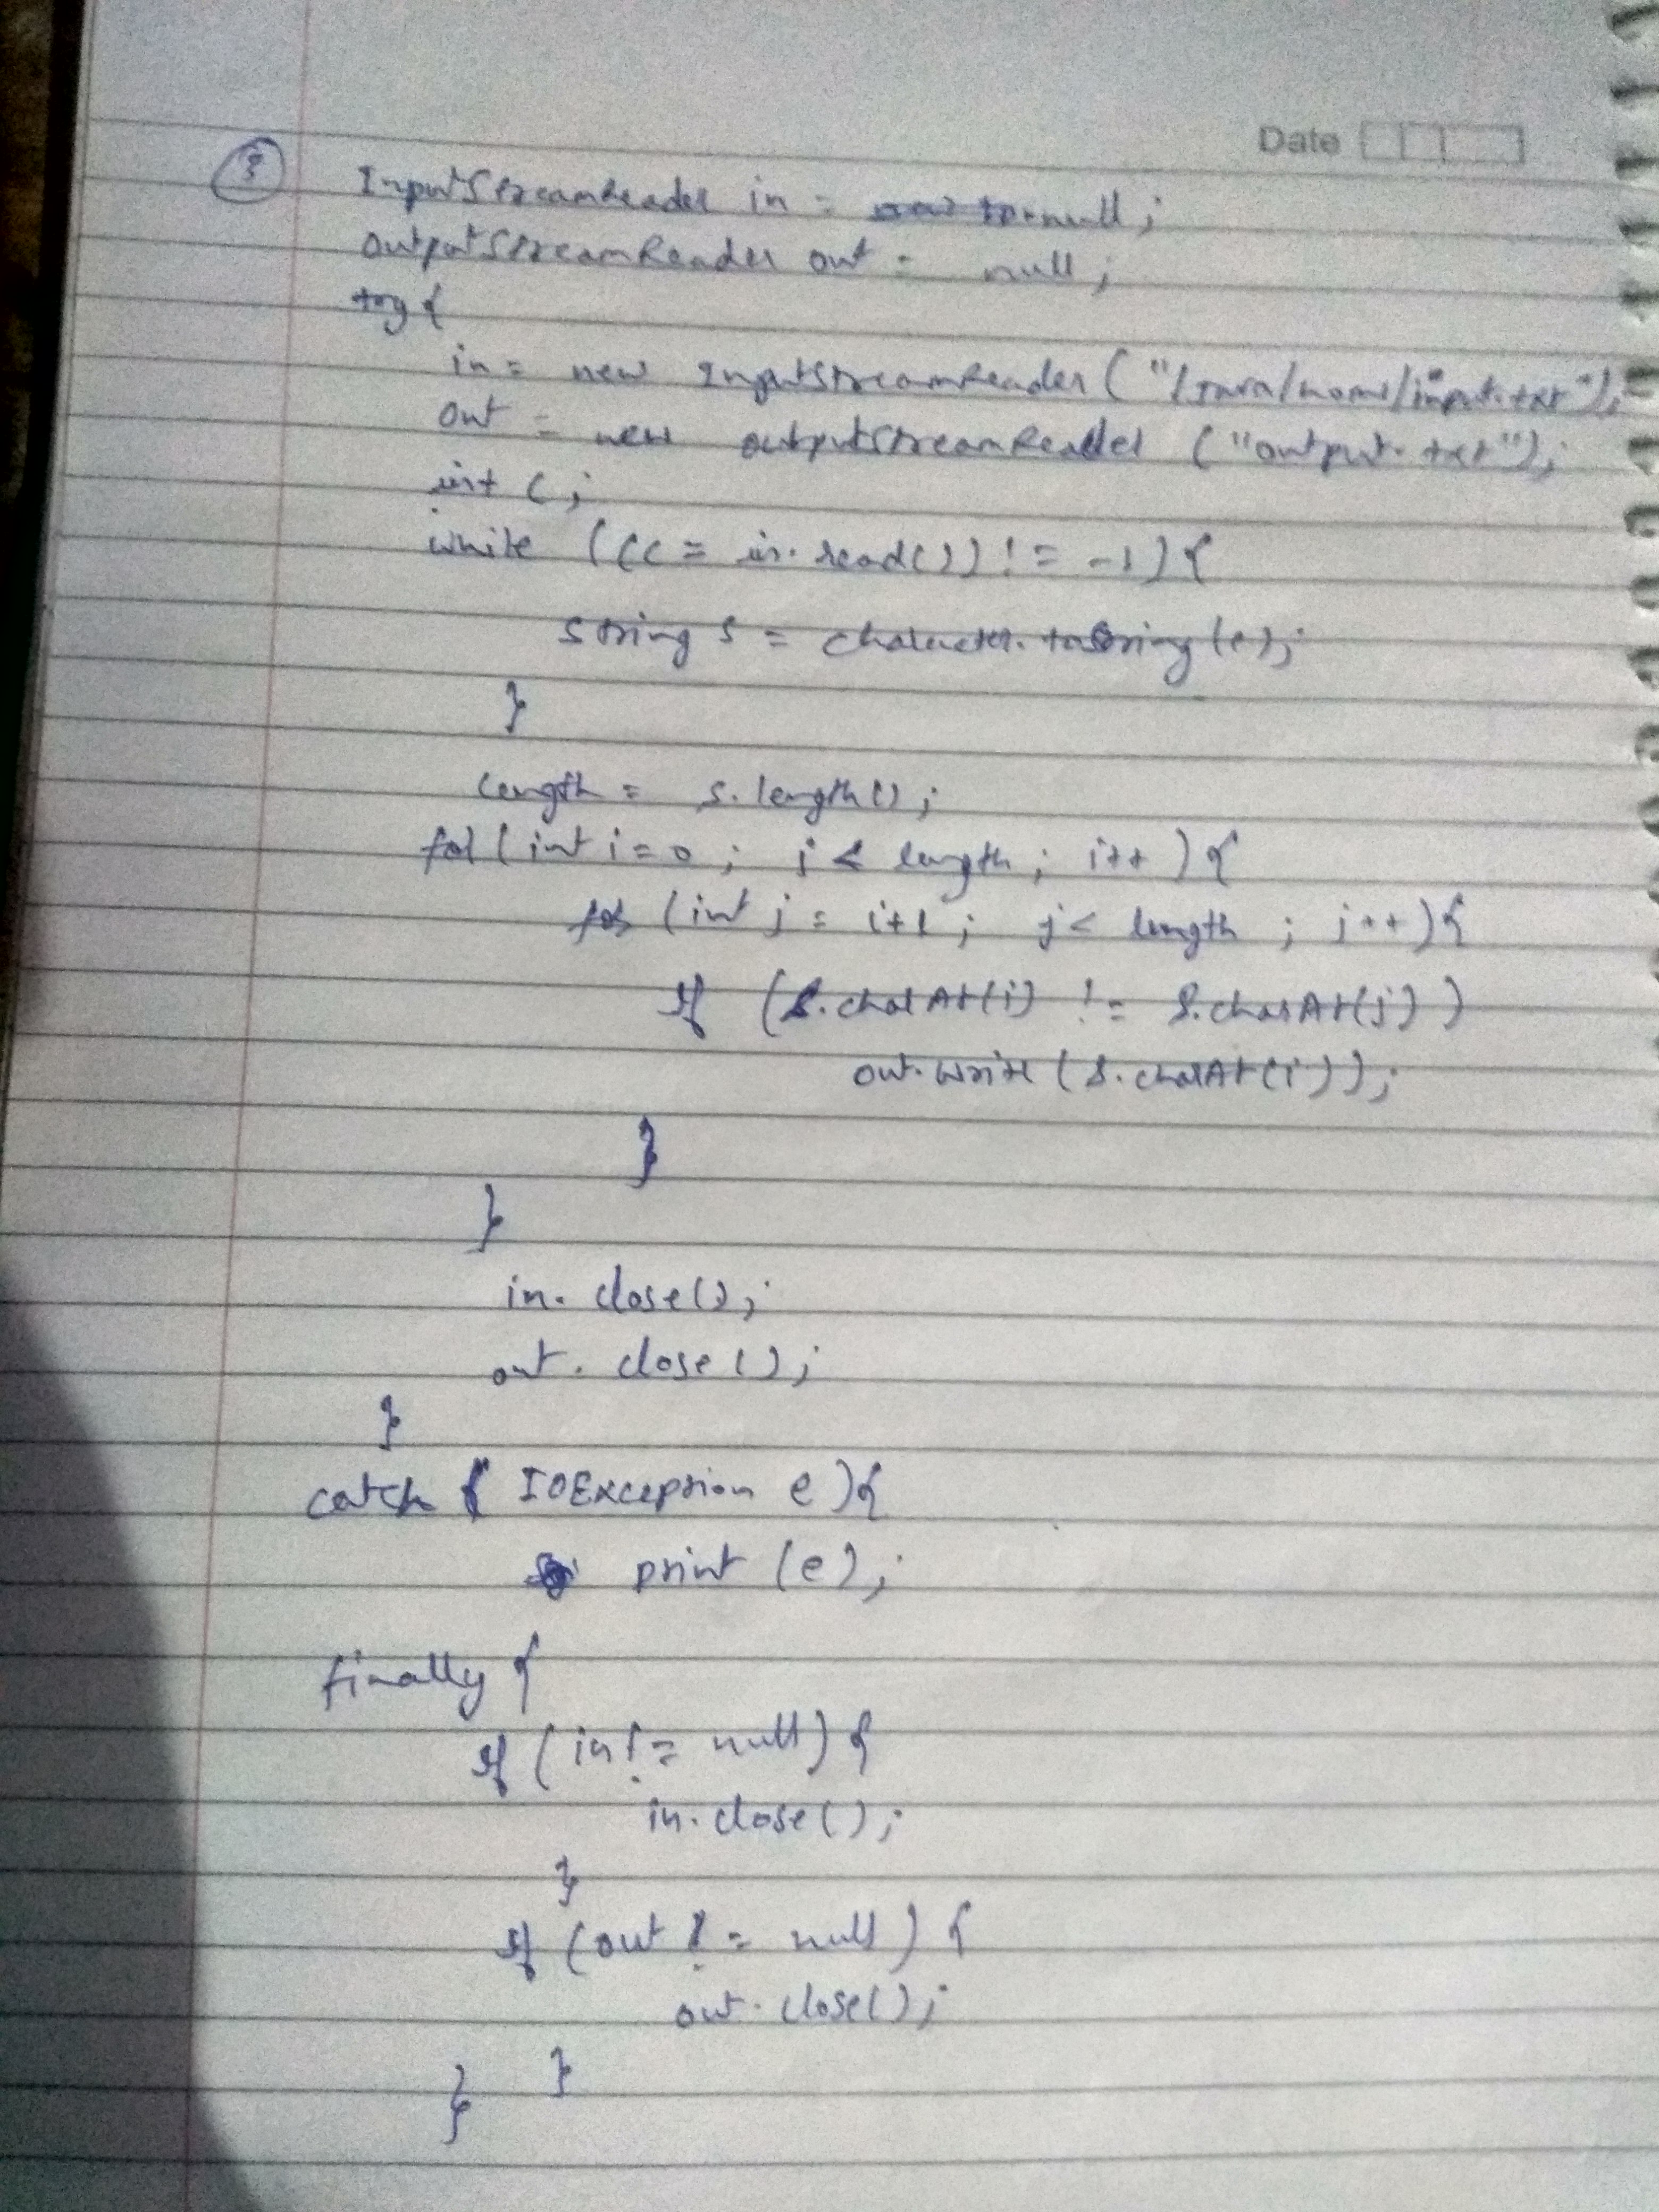 Date
InputStreamReader in = null;
OutputStreamReader out = null;
try {
in = new InputStreamReader ("/java/home/input.txt");
out = new outputStreamReader ("output.txt");
int c;
while ((c = in.read()) != -1) {
string s = character.toString(c);
}
length = s.length();
for (int i=0; i < length; i++) {
for (int j = i+1; j < length; j++) {
if (s.charAt(i) != s.charAt(j))
out.write (s.charAt(i));
}
}
in.close();
out.close();
}
catch ( IOException e) {
print (e);
finally {
if (in != null) {
in.close();
}
if (out != null) {
out.close();
}
}